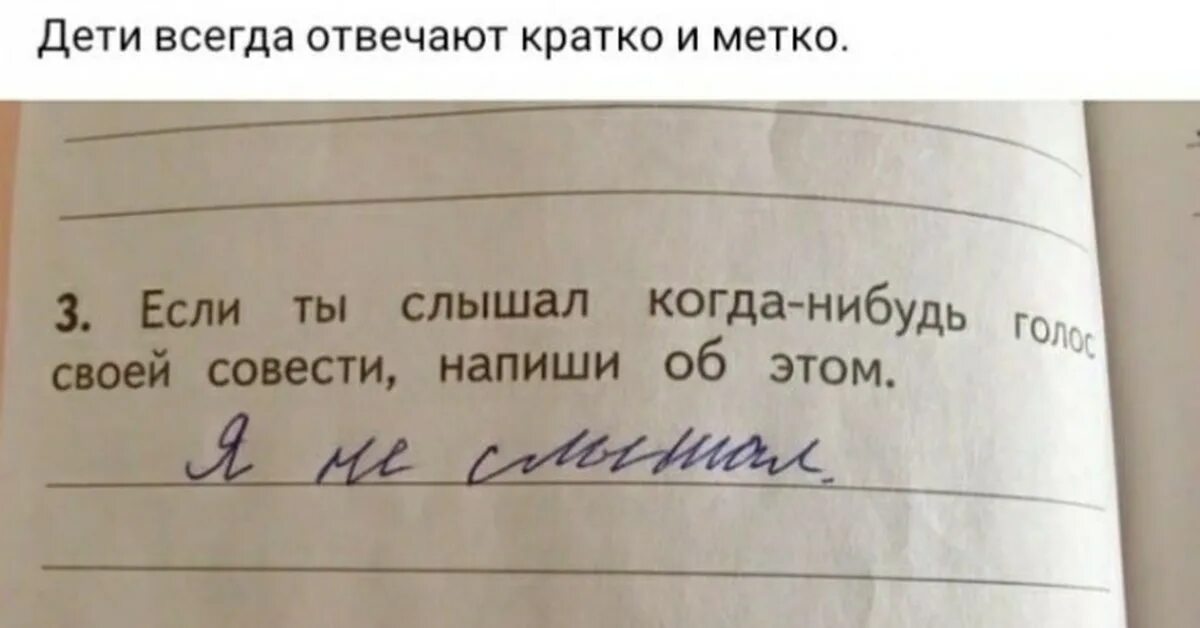 Дети всегда отвечают кратко и метко.
3. Если ты слышал когда-нибудь голос
своей совести, напиши об этом.
Я не слышал.